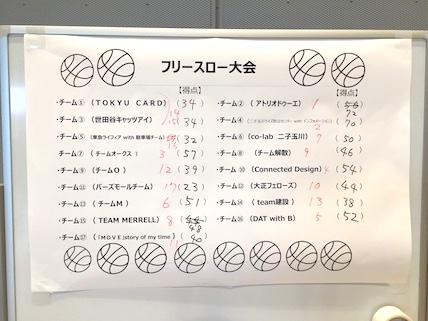 フリースロー大会
【得点】 【得点】
・チーム① （TOKYU CARD） (34) ・チーム② （アトリオドゥーエ） 1 72
・チーム③ （世田谷キャッツアイ） (34) ・チーム④ 2 (70)
・チーム⑤ （東急ライフィア with 駐車場チーム） (32) ・チーム⑥ （co-lab 二子玉川） 7 (50)
・チーム⑦ （チームオークス） 3 (57) ・チーム⑧ （チーム解散） 9 (46)
・チーム⑨ （チームO） 12 (39) ・チーム⑩ （Connected Design） 4 (54)
・チーム⑪ （バーズモールチーム） 17 (23) ・チーム⑫ （大正フェローズ） 10 (44)
・チーム⑬ （チームM） 6 (51) ・チーム⑭ （team建設） 13 (38)
・チーム⑮ （TEAM MERRELL） 8 48 ・チーム⑯ （DAT with B） 5 (52)
・チーム⑰ （「MOVE」story of my time） 11 (40)